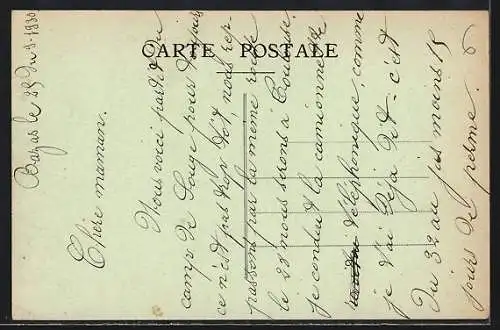 CARTE POSTALE
Bazas le 25 du 9-1930
Chère maman.
Nous voici partit du
camp de Souge pour depuis
ce n'est pas trop tôt, nous rep-
passons par la même route
le 28 nous serons à Toulouse.
je conduit la camionnette
téléphonique, comme
je t'ai déjà dit - c'est
Du 32 au jus moins 15
jours de perme. 6